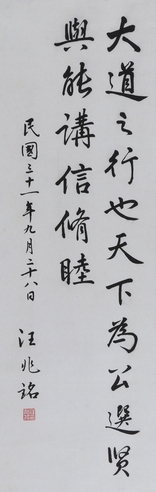 大道之行也天下為公選賢
與能講信脩睦
民國三十一年九月二十八日
汪兆銘